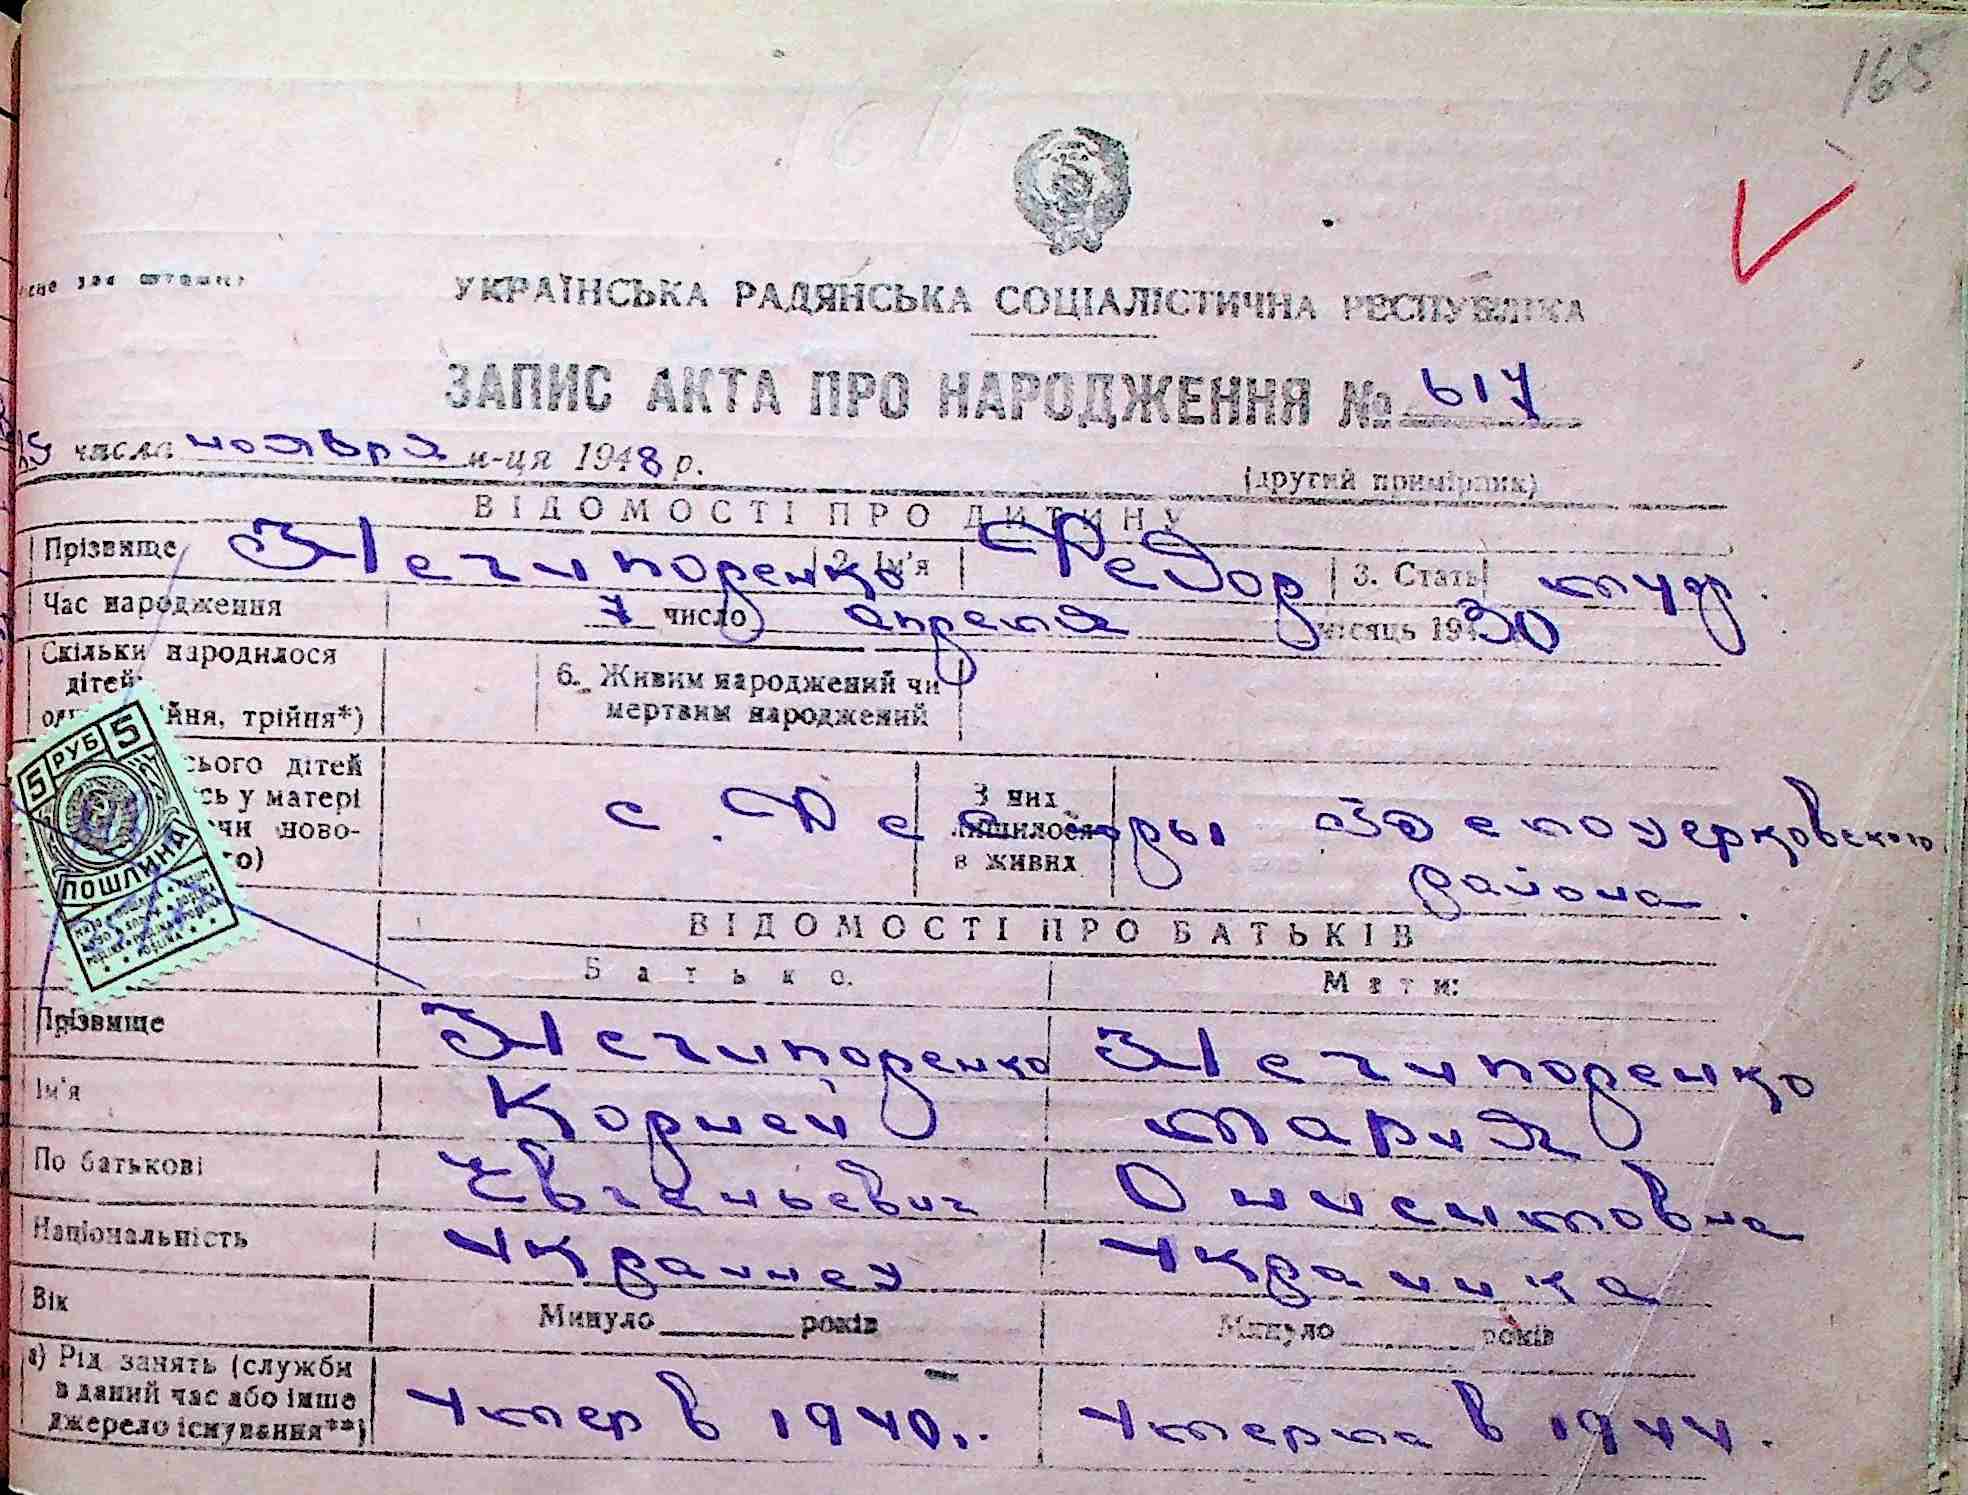 165
УКРАЇНСЬКА РАДЯНСЬКА СОЦІАЛІСТИЧНА РЕСПУБЛІКА
ЗАПИС АКТА ПРО НАРОДЖЕННЯ № 617
15 числа ноября м-ця 1948 р.
(другий примірник)
ВІДОМОСТІ ПРО ДИТИНУ
Прізвище Негипоренко 2. Ім'я Федор 3. Стать муж.
Час народження 7 число апреля місяць 1930
Скільки народилося дітей: 6. Живим народжений чи
йня, трійня*) мертвим народжений
5 РУБ 5
ПОШЛИНА
сього дітей
сь у матері
чи ново-
го)
с. Федоры З них лишилося в живих
района.
ВІДОМОСТІ ПРО БАТЬКІВ
Батько. Мати:
Прізвище Негипоренко Негипоренко
Ім'я Корней Мария
По батькові Евгеньевич Онисимовна
Національність Украинец Украинка
Вік Минуло років Минуло років
а) Рід занять (служби
в даний час або інше
джерело існування**)
Умер в 1940. Умерла в 1944.